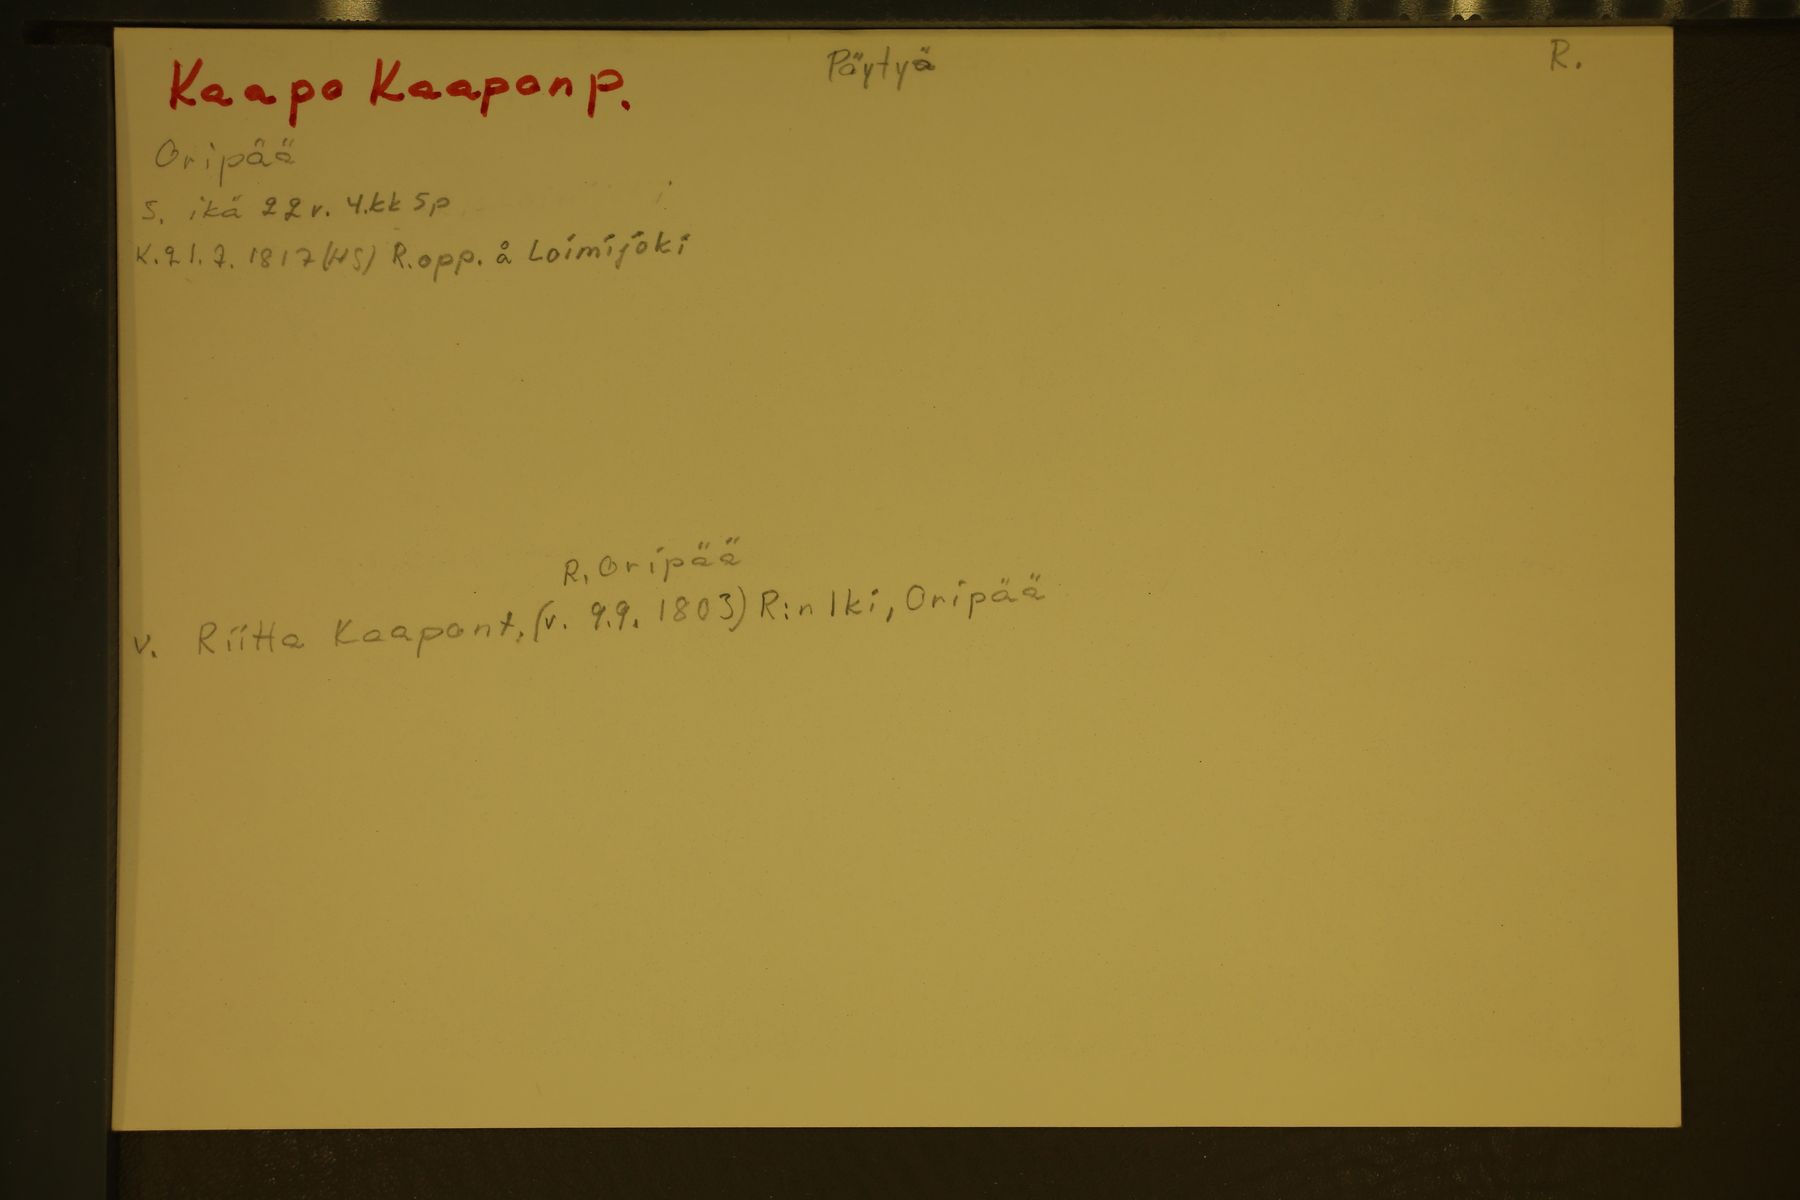 Kaapo Kaaponp.
Pöytyä
R.
Oripää
S. ikä 22v. 4.kk 5p
K. 21.7. 1817 (HS) R.opp. å Loimijoki
R, Oripää
v. Riitta Kaapont. (v. 9.9. 1803) R:n lki, Oripää